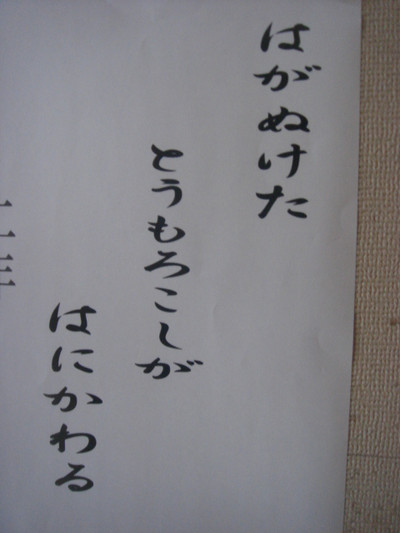 はがぬけた
とうもろこしが
はにかわる